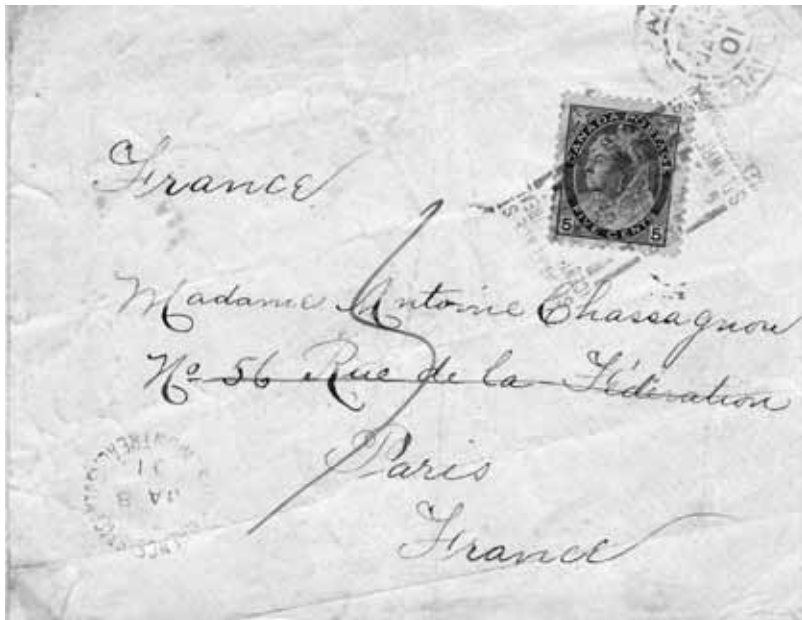 01
CANADA POSTAGE
FIVE CENTS
5 5
France
Madame Antoine Chassagnon
No 56 Rue de la Fédération
Paris
France
MONTREAL
JA 8